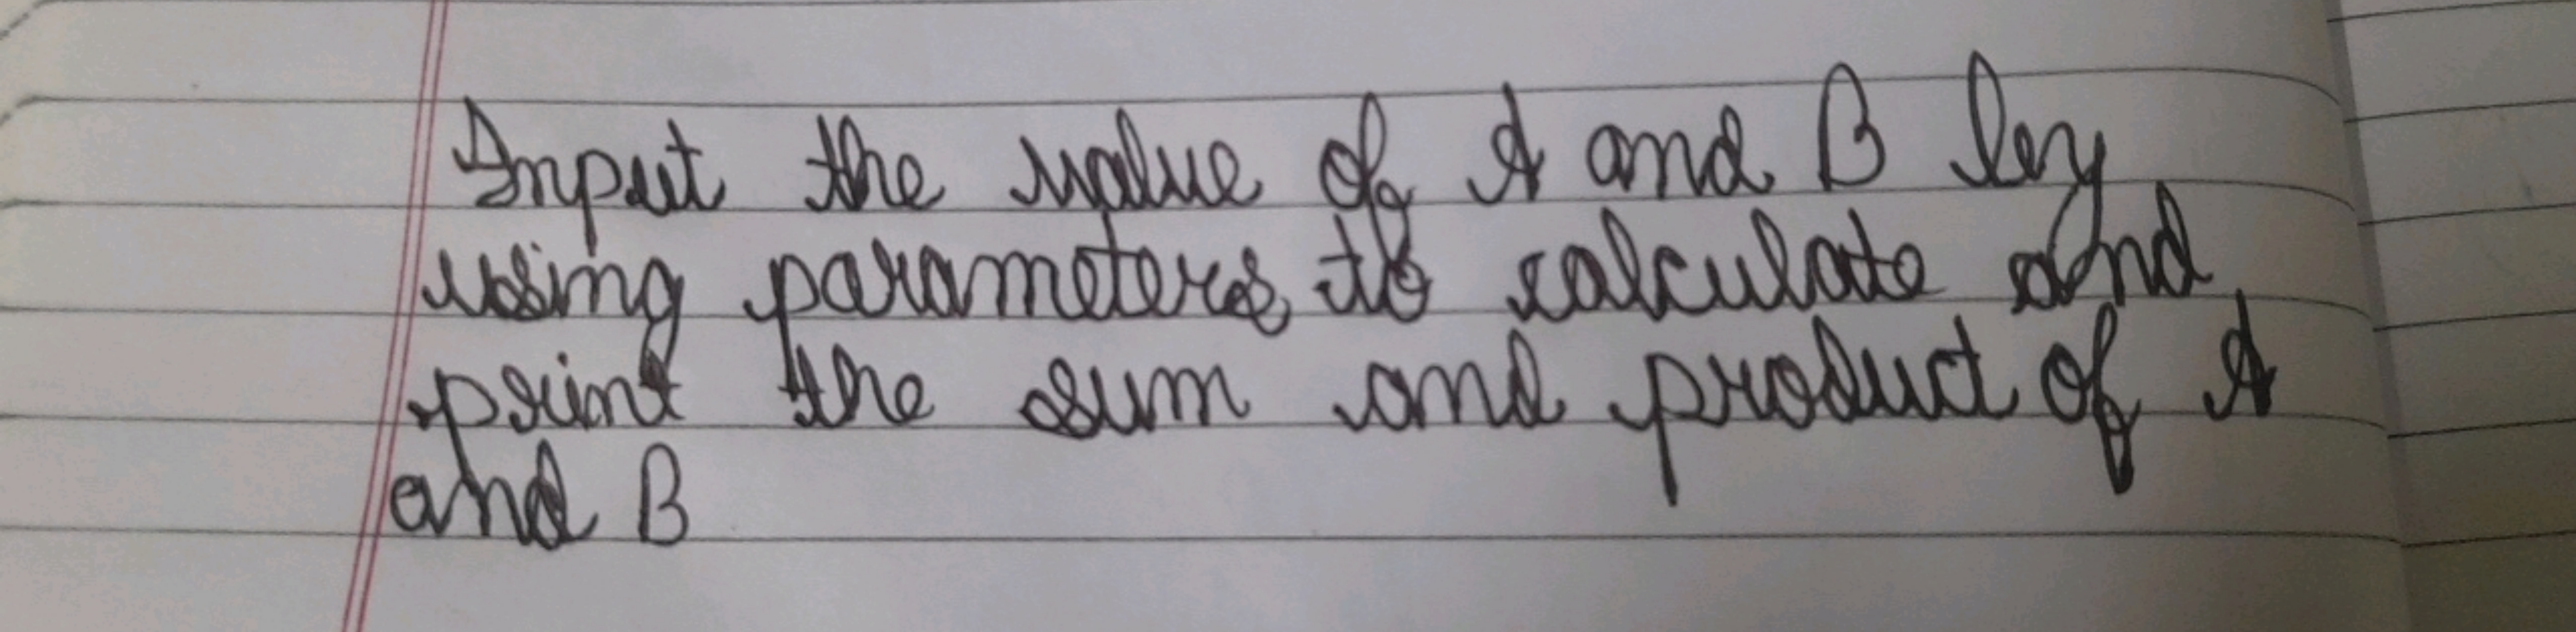 Input the value of A and B by
using parameters to calculate and
print the sum and product of A
and B